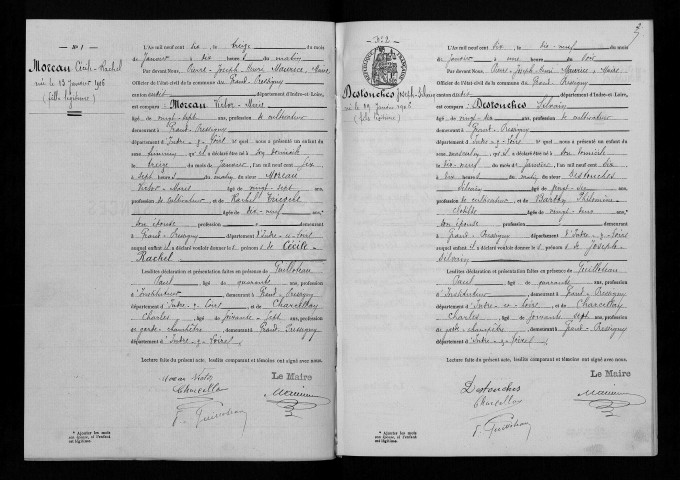 N° 1
Moreau Cécile-Rachel
née le 13 Janvier 1906
(fille légitime)
L'An mil neuf cent six le treize du mois
de Janvier à dix heures du matin
Par devant Nous, Pierre-Joseph-Henri Maurice, Maire
Officier de l'état civil de la commune du Grand-Pressigny
canton département d'Indre-et-Loire,
est comparu Moreau Victor-Marie
âgé de vingt-sept ans, profession de cultivateur
demeurant à Grand-Pressigny
département d'Indre-&-Loire lequel nous a présenté un enfant du
sexe féminin qu'il a déclaré être né à son domicile
le treize du mois de Janvier, l'an mil neuf cent six
à sept heures du matin du sieur Moreau
Victor-Marie âgé de vingt-sept ans,
profession de cultivateur et de Rachel
âgée de dix-neuf ans,*
son épouse profession demeurant
à Grand-Pressigny département d'Indre-et-Loire
auquel enfant il a déclaré vouloir donner les prénoms de Cécile-
Rachel
Lesdites déclaration et présentation faites en présence de Guilloteau
Paul âgé de quarante ans, profession
d'Instituteur demeurant à Grand-Pressigny
département d'Indre-&-Loire et de Charcellay
Charles âgé de soixante-sept ans, profession
de garde-champêtre, demeurant à Grand-Pressigny
département d'Indre-&-Loire
Lecture faite du présent acte, lesdits comparant et témoins ont signé avec nous.
Le Maire
* Ajouter les mots
son épouse, si l'enfant
est légitime.
N° 2
Destouches Joseph-Silvain
né le 19 Janvier 1906
(fils légitime)
L'An mil neuf cent six le dix-neuf du mois
de Janvier à une heure du soir
Par devant Nous, Pierre-Joseph-Henri Maurice, Maire
Officier de l'état civil de la commune du Grand-Pressigny
canton département d'Indre-et-Loire,
est comparu Destouches Silvain
âgé de vingt-six ans, profession de cultivateur
demeurant à Grand-Pressigny
département d'Indre-&-Loire lequel nous a présenté un enfant du
sexe masculin qu'il a déclaré être né à son domicile
le dix-neuf du mois de Janvier, l'an mil neuf cent six
à six heures du matin du sieur Destouches
Silvain âgé de vingt-six ans,
profession de cultivateur et de Barthy Philomène-
Clotilde âgée de vingt-deux ans,*
son épouse profession demeurant
à Grand-Pressigny département d'Indre-&-Loire
auquel enfant il a déclaré vouloir donner les prénoms de Joseph-
Silvain
Lesdites déclaration et présentation faites en présence de Guilloteau
Paul âgé de quarante ans, profession
d'Instituteur demeurant à Grand-Pressigny
département d'Indre-et-Loire et de Charcellay
Charles âgé de soixante-sept ans, profession
de garde-champêtre, demeurant à Grand-Pressigny
département d'Indre-&-Loire
Lecture faite du présent acte, lesdits comparant et témoins ont signé avec nous.
Le Maire
Destouches
* Ajouter les mots
son épouse, si l'enfant
est légitime.